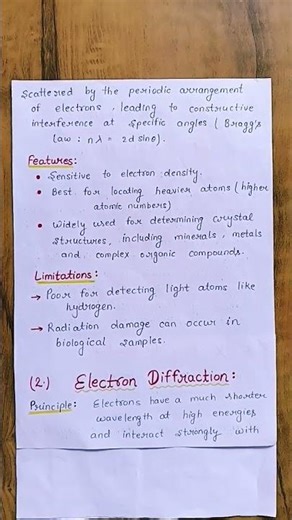 scattered by the periodic arrangement
of electrons, leading to constructive
interference at specific angles (Bragg's
law : nλ = 2d sinθ).
Features:
• Sensitive to electron density.
• Best for locating heavier atoms (higher
atomic numbers)
• Widely used for determining crystal
structures, including minerals, metals
and complex organic compounds.
Limitations:
→ Poor for detecting light atoms like
hydrogen.
→ Radiation damage can occur in
biological samples.
(2.) Electron Diffraction:
Principle: Electrons have a much shorter
wavelength at high energies
and interact strongly with